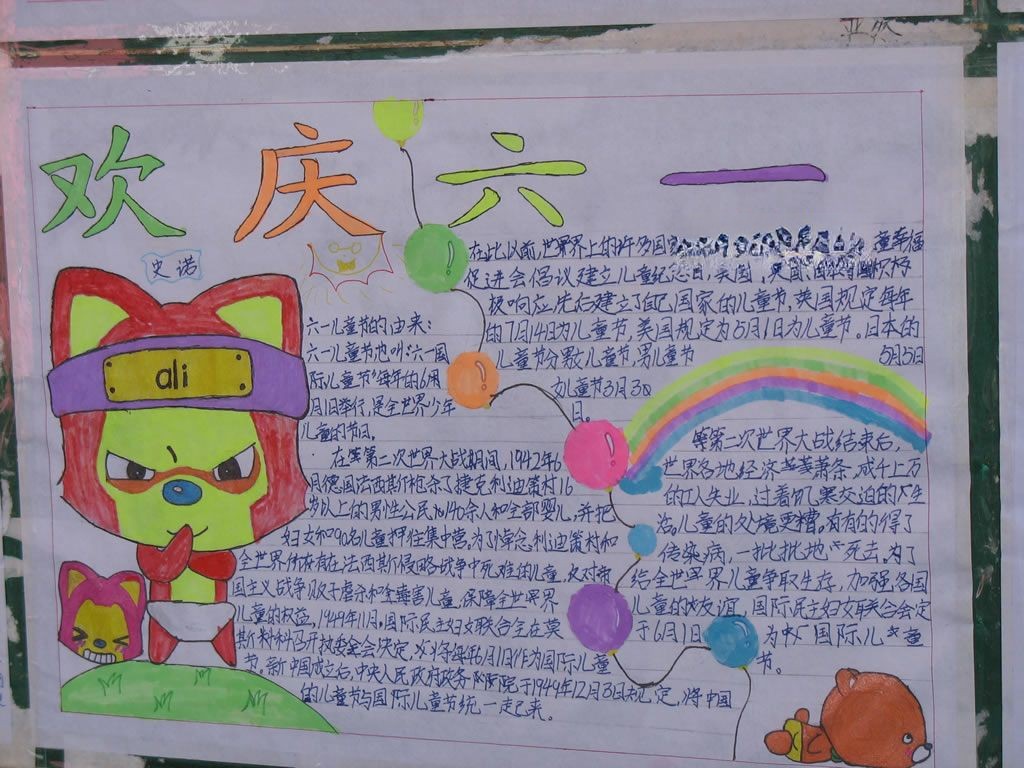 亚版
欢庆六一
史诺
ali
六一儿童节的由来：
六一儿童节也叫"六一国
际儿童节"每年的6月
月1日举行，是全世界少年
儿童的节日。
在第二次世界大战期间，1942年6
月德国法西斯枪杀了捷克利迪策村16
岁以上的男性公民140余人和全部婴儿，并把
妇女和90名儿童押往集中营。为了悼念利迪策村和
全世界所有在法西斯侵略战争中死难的儿童，反对帝
国主义战争贩子虐杀和毒害儿童，保障全世界
儿童的权益，1949年11月，国际民主妇女联合会在莫
斯科召开执委会会决定，将每年6月1日作为国际儿童
节。新中国成立后，中央人民政府政务院于1949年12月3日规定，将中国
的儿童节与国际儿童节统一起来。
在比以前，世界上的许多国 童幸福
促进会倡议建立儿童纪
极响应，先后建立了自己国家的儿童节，英国规定每年
的7月14日为儿童节，美国规定为5月1日为儿童节。日本的
儿童节分男女儿童节，男儿童节 5月5日
女儿童节3月3日
日。
第二次世界大战结束后，
世界各地经济萧条，成千上万
的工人失业，过着饥寒交迫的生
活。儿童的处境更糟。有的得了
传染病，一批批地死去。为了
给全世界儿童争取生存，加强各国
儿童的友谊，国际民主妇女联合会定
于6月1日 为 国际儿童
节。